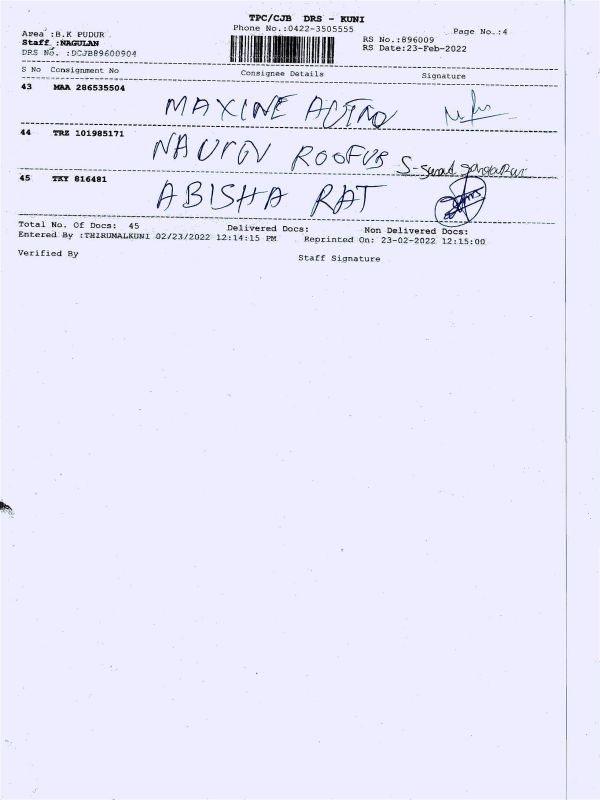 TPC/CJB DRS - KUNI
Phone No.:0422-3505555
Area :B.K PUDUR
Staff :NAGULAN
DRS No. :DCJB89600904
RS No.:896009
RS Date:23-Feb-2022
Page No.:4
S No Consignment No Consignee Details Signature
43 MAA 286535504 MAXINE
44 TRZ 101985171
45 TKY 816481 ABISHA RAT
Total No. Of Docs: 45 Delivered Docs: Non Delivered Docs:
Entered By :THIRUMALKUNI 02/23/2022 12:14:15 PM Reprinted On: 23-02-2022 12:15:00
Verified By Staff Signature